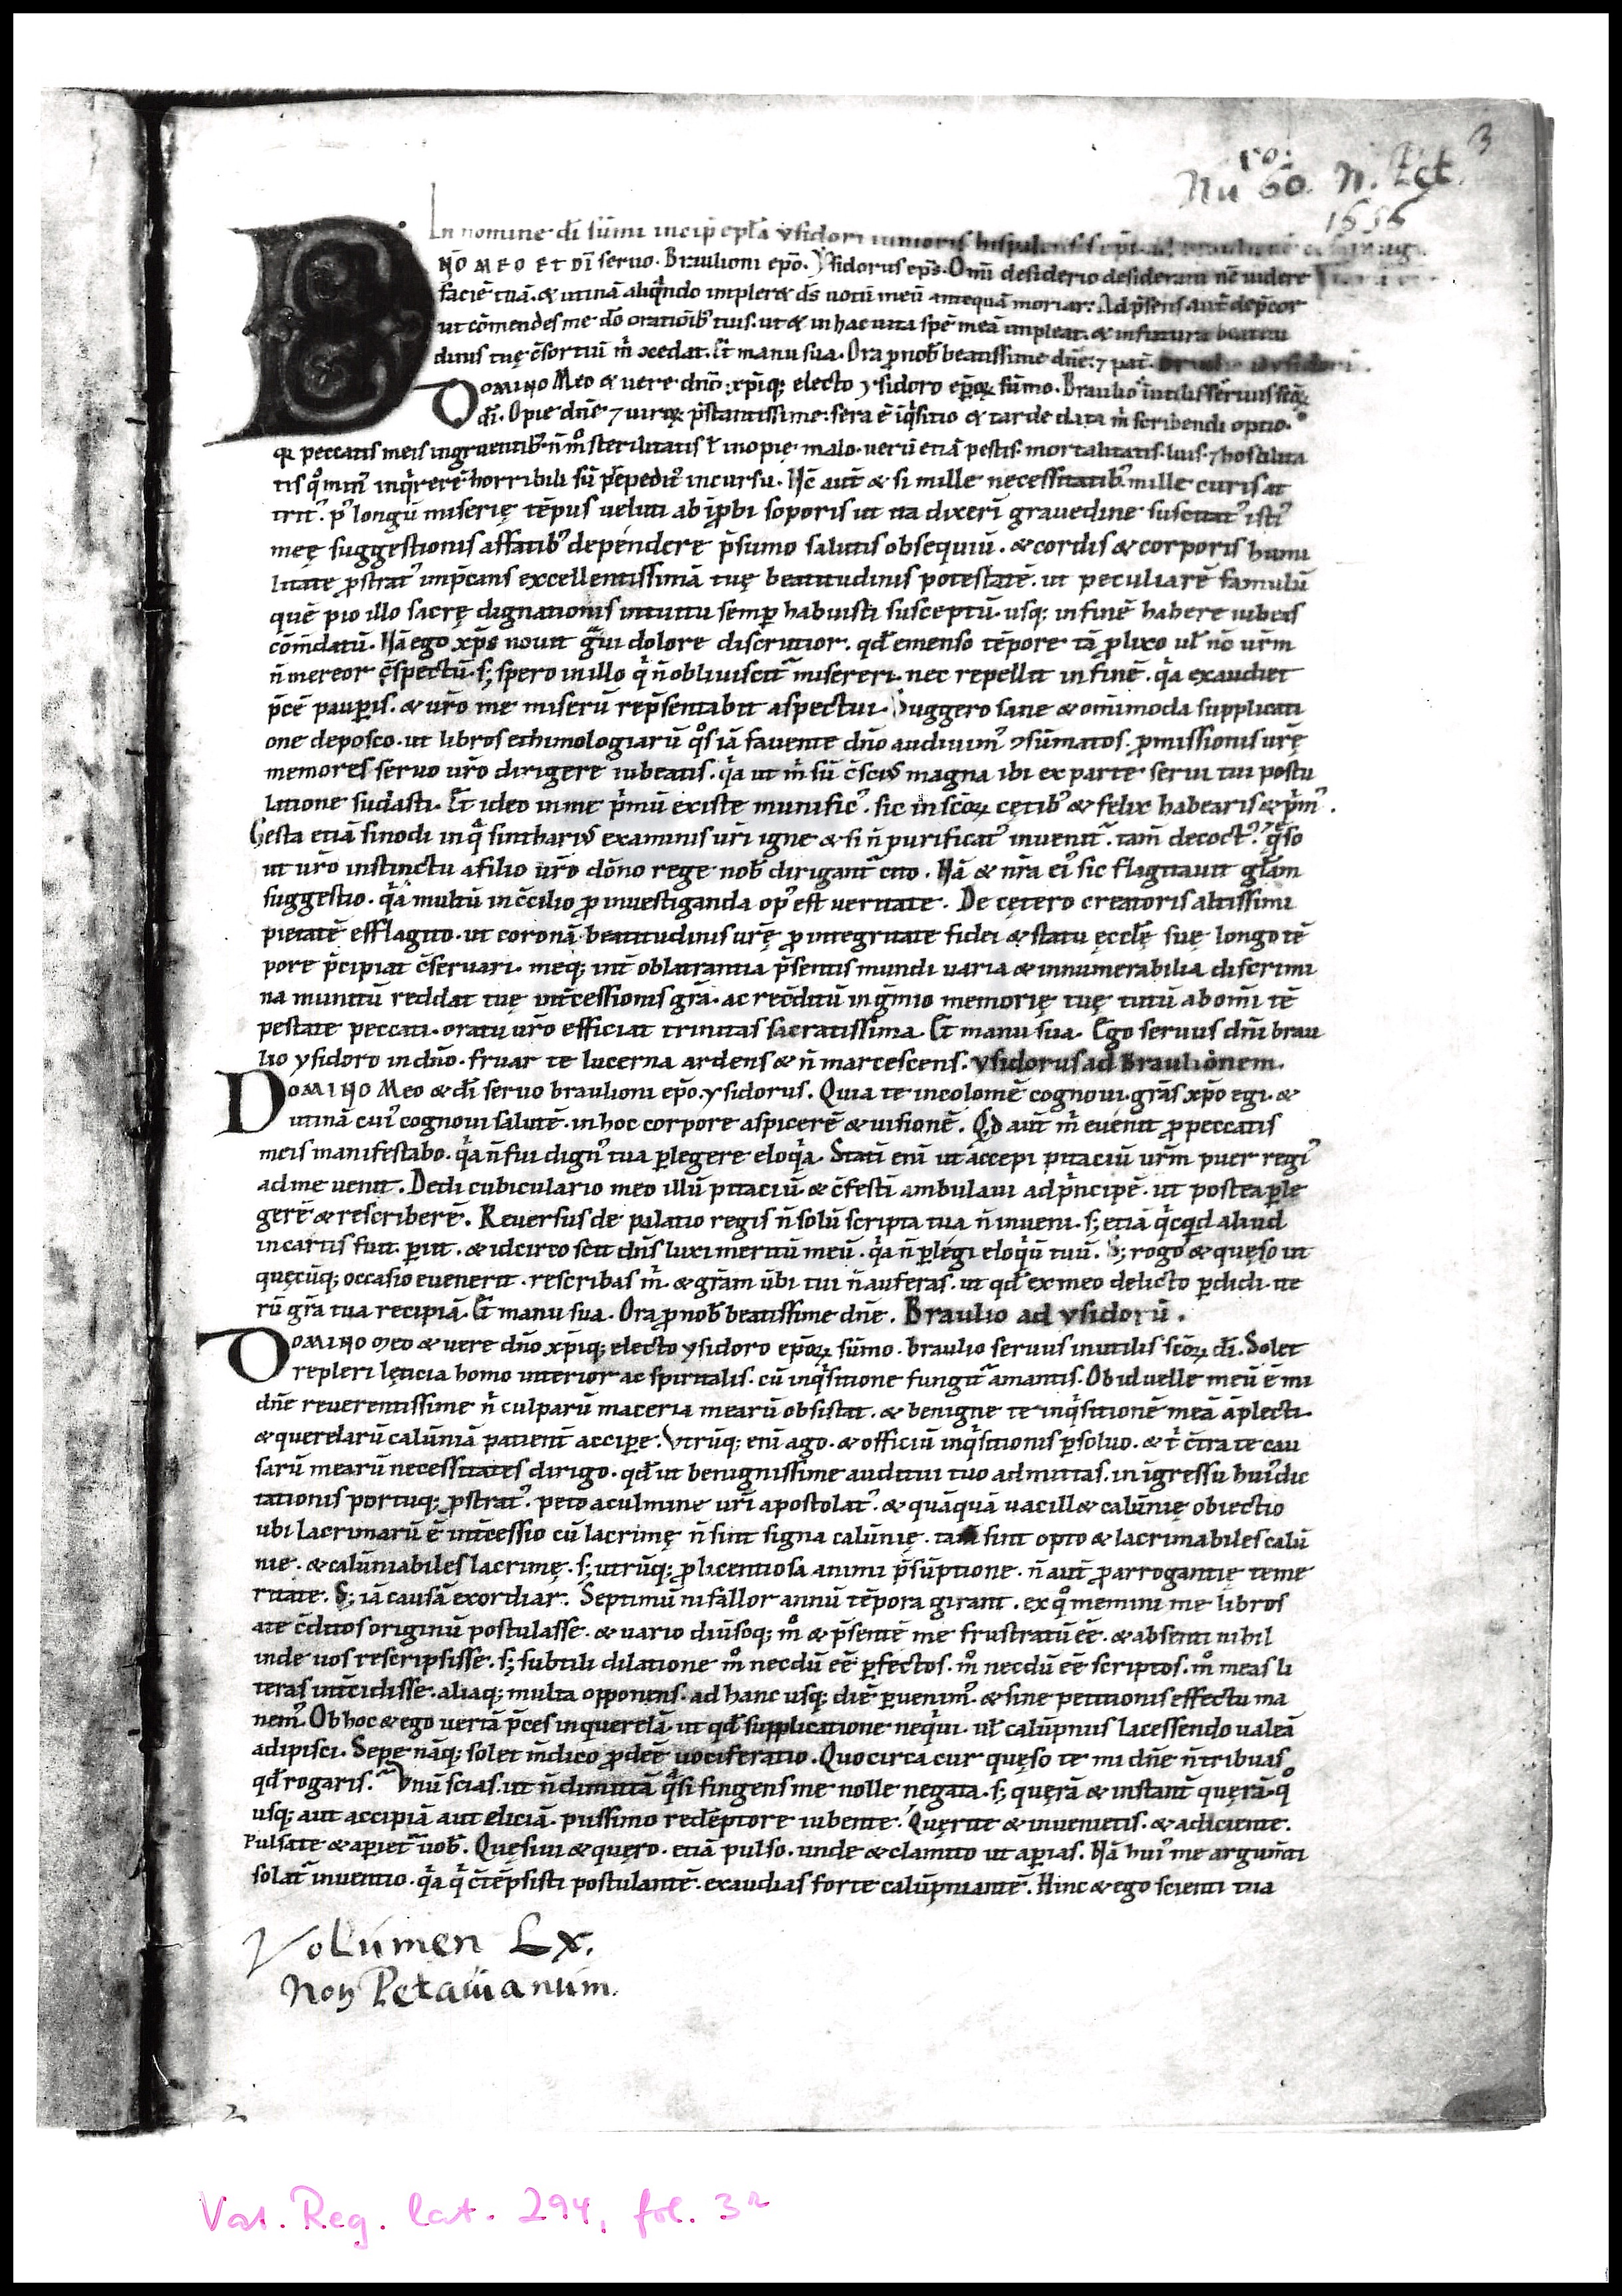 3
ro:
Nu 60. N. Pet.
1656
In nomine dī sūmi incip̄ ep̄la ysidori iunioris hispalensis
NO MEO ET DĪ servo. Braulioni ep̄o. Ysidorus ep̄s. Omī desiderio desideraui nc̄ uidere
faciē tuā. & utinā aliqͣndo impler& dš uotū meū antequā moriar. Ad p̄sens aut̄ dep̄cor
ut cōmendes me dō orationibꝰ tuis. ut & in hac uita spē meā impleat. & in futura beatitu
dinis tuę c̄sortiū m̄ ↄcedat. Et manu sua. Ora ꝓ nob̄ beatissime dn̄e. ⁊ pat̄.
Domino Meo & vere dn̄o. xp̄iq; electo ysidoro ep̄oꝝ sūmo. Braulio inutilis seruus sc̄oꝝ
dī. O pie dn̄e ⁊ uiroꝝ p̄stantissime. sera ē iqͥsitio & tarde data m̄ scribendi optio.
qꝛ peccatis meis ingruentibꝰ. n̄ m̊ sterilitatis ł inopię malo. verū etiā pestis. mortalitatis. luis. ⁊ hostilita
tis q̊ minꝰ inqͥrerē horribili sū p̄epeditꝰ incursu. Nc̄ aut̄ & si mille necessitatibꝰ. mille curis at
tritꝰ. pꝰ longū miserię tēpus veluti ab īprobi soporis ut ita dixerī grauedine suscitatꝰ istiꝰ
meę suggestionis affatibꝰ dependere p̄sumo salutis obsequiū. & cordis & corporis humi
litate ꝓstratꝰ imp̄cans excellentissimā tuę beatitudinis potestatē. ut peculiarē famulū
quē pio illo sacrę dignationis intuitu semꝑ habuisti susceptū. usq; in finē habere iubeas
cōm̄datū. Nā ego xp̄s nouit gͣui dolore discrutior. qd̄ emenso tēpore tā ꝓlixo ul̄ nō ur̄m
n̄ mereor c̄spectū. s; spero in illo qͥ n̄ obliuiscit̄ misereri. nec repellit in finē. qͥa exaudiet
p̄cē pauꝑis. & ur̄o me miserū rep̄sentabit aspectui. Suggero sane & omīmoda supplicati
one deposco. ut libros ethimologiarū qͦs iā fauente dn̄o audiuimꝰ ↄsūmatos. ꝓmissionis urę̄
memores seruo ur̄o dirigere iubeatis. qͥa ut m̄ sū c̄sciꝰ magna ibi ex parte serui tui postu
latione sudasti. Et ideo in me p̄mū existe munificꝰ. sic in sc̄oꝝ cętibꝰ & felix habearis & p̄mꝰ.
Gesta etiā sinodi in qͣ sintharius examinis ur̄i igne & si n̄ purificatꝰ inuenit̄. tam̄ decoctꝰ. qͣso
ut ur̄o instinctu a filio ur̄o dōno rege nob̄ dirigant̄ cito. Nā & nr̄a eiꝰ sic flagitauit glām
suggestio. qͥa multū in c̄cilio ꝓ inuestiganda opꝰ est veritate. De cętero creatoris altissimi
pietatē efflagito. ut coronā beatitudinis urę̄ ꝓ integritate fidei & statu ęccłę suę longo tē
pore p̄cipiat c̄seruari. meq; int̄ oblatrantia p̄sentis mundi uaria & innumerabilia discrimi
na munitū reddat tuę int̄cessionis gr̄a. ac rec̄ditū in gͣmio memorię tuę tutū ab omī tē
pestate peccati. oratu ur̄o efficiat trinitas sacratissima. Et manu sua. Ego seruus dn̄i brau
lio ysidoro in dn̄o. fruar te lucerna ardens & n̄ marcescens. Ysidorus ad Braulionem.
Domino Meo & dī seruo braulioni ep̄o. ysidorus. Quia te incolomē cognoui. gr̄as xp̄o egi. &
utinā cuiꝰ cognoui salutē. in hoc corpore aspicerē & uisionē. Qd̄ aut̄ m̄ euenit ꝓ peccatis
meis manifestabo. qͥa n̄ fui dignꝰ tua ꝑlegere eloqͥa. Statī enī ut accepi pitaciū ur̄m puer regiꝰ
ad me uenit. Dedi cubiculario meo illū pitaciū. & c̄festī ambulaui ad p̄ncipē. ut postea ꝑle
gerē & rescriberē. Reuersus de palatio regis n̄ solū scripta tua n̄ inueni. s; etiā qͥcqͥd aliud
in cartis fuit. ꝑiit. & idcirco scit dn̄s luxi meritū meū. qͥa n̄ ꝑlegi eloqͥū tuū. S; rogo & quęso ut
quęcūq; occasio euenerit. rescribas m̄. & gr̄am ūbi tui n̄ auferas. ut qd̄ ex meo delicto ꝑdidi. ite
rū gr̄a tua recipiā. Et manu sua. Ora ꝓ nob̄ beatissime dn̄e. Braulio ad ysidorū.
Domino meo & vere dn̄o xp̄iq; electo ysidoro ep̄oꝝ sūmo. braulio seruus inutilis sc̄oꝝ dī. Solet
repleri lęticia homo interior ac spiritalis. cū inqͥsitione fungit̄ amantis. Ob id uelle meū ē mi
dn̄e reuerentissime nͥ culparū maceria mearū obsistat. & benigne te inqͥsitionē meā āplecti.
& querelarū calūniā patient̄ acciꝑe. Utrūq; enī ago. & officiū inqͥsitionis ꝑsoluo. & tͥ c̄tra te cau
sarū mearū necessitates dirigo. qd̄ ut benignissime auditui tuo admittas. in īgressu huiꝰ dic
tationis portuq; ꝓstratꝰ. peto a culmine ur̄i apostolatꝰ. & quāquā uacill& calūnię obiectio
ubi lacrimarū ē int̄cessio cū lacrimę n̄ sint signa calūnię. sint opto & lacrimabiles calū
nie. & calūniabiles lacrimę. s; utrūq; ꝓ licentiosa animi p̄sūptione. n̄ aut̄ ꝓ arrogantię teme
ritate. S; iā causā exordiar. Septimū ni fallor annū tēpora girant. ex q̊ memini me libros
a te c̄ditos originū postulasse. & uario diūsoq; m̊ & p̄sentē me frustratū eē. & absenti nihil
inde uos rescripsisse. s; subtili dilatione m̊ necdū eē ꝑfectos. m̊ necdū eē scriptos. m̊ meas li
teras int̄cidisse. aliaq; multa opponens. ad hanc usq; diē ꝑuenimꝰ. & sine petitionis effectu ma
nemꝰ. Ob hoc & ego uertā p̄ces in querelā. ut qd̄ supplicatione neqͥui. ul̄ calūpniis lacessendo ualeā
adipisci. Sepe nāq; solet m̄dico ꝓdeē uociferatio. Quocirca cur quęso te mi dn̄e n̄ tribuas
qd̄ rogaris. Unū scias. ut n̄ dimittā qͣsi fingens me nolle negata. s; quęrā & instant̄ quęrā. q̊
usq; aut accipiā aut eliciā. piissimo redēptore iubente. Quęrite & inuenietis. & adiciente.
Pulsate & aꝑiet̄ uob̄. Quęsiui & quęro. etiā pulso. unde & clamito ut aꝑias. Nā huiꝰ me argum̄ti
solat̄ inuentio. qͥa qͥ c̄tēpsisti postulantē. exaudias forte calūpniantē. Hinc & ego scienti tua
Volumen LX.
Non Petauianum.
Vat. Reg. lat. 294, fol. 3r